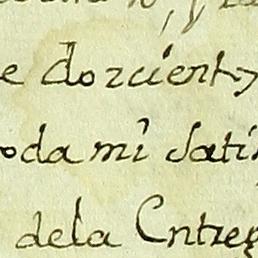 e dozcient
oda mi sati
dela Entreg